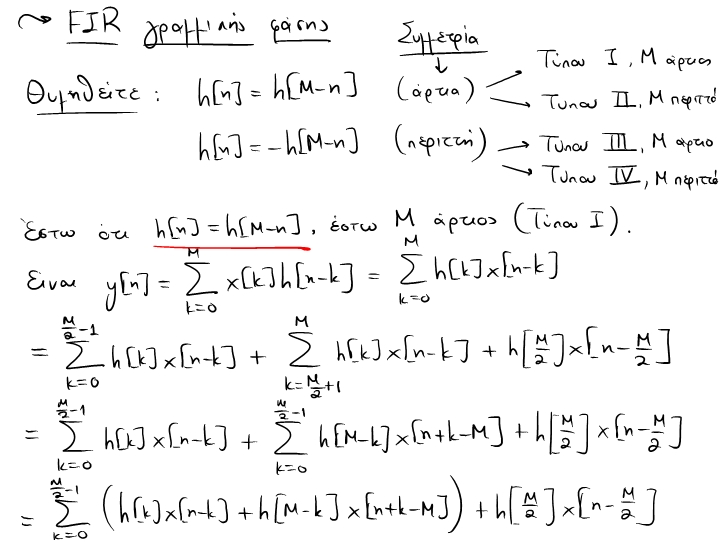 ~> FIR γραμμικής φάσης
Συμμετρία
↓
Θυμηθείτε : h[n] = h[M-n] (άρτια) → Τύπου I, M άρτιος
→ Τύπου II, M περιττό
h[n] = -h[M-n] (περιττή) → Τύπου III, M άρτιο
→ Τύπου IV, M περιττό
Έστω ότι h[n] = h[M-n], έστω M άρτιος (Τύπου I).
Είναι y[n] = \sum_{k=0}^{M} x[k]h[n-k] = \sum_{k=0}^{M} h[k]x[n-k]
= \sum_{k=0}^{\frac{M}{2}-1} h[k]x[n-k] + \sum_{k=\frac{M}{2}+1}^{M} h[k]x[n-k] + h[\frac{M}{2}]x[n-\frac{M}{2}]
= \sum_{k=0}^{\frac{M}{2}-1} h[k]x[n-k] + \sum_{k=0}^{\frac{M}{2}-1} h[M-k]x[n+k-M] + h[\frac{M}{2}]x[n-\frac{M}{2}]
= \sum_{k=0}^{\frac{M}{2}-1} (h[k]x[n-k] + h[M-k]x[n+k-M]) + h[\frac{M}{2}]x[n-\frac{M}{2}]